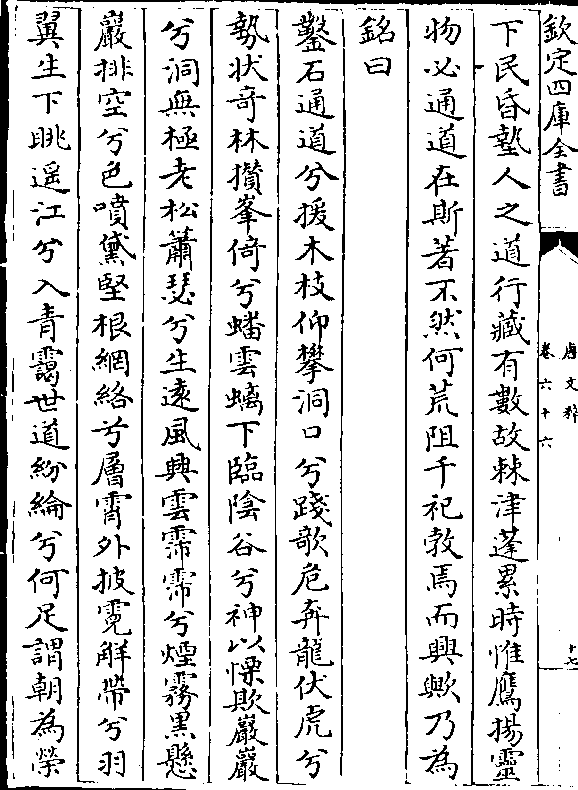 欽定四庫全書
唐文粹
卷六十六
十七
下民昏墊人之道行藏有數故棘津蓬累時惟鷹揚靈
物必通道在斯著不然何荒阻千祀敦焉而興歟乃為
銘曰
鑿石通道兮援木枝仰攀洞口兮踐歌危奔龍伏虎兮
勢狀竒林攅峯倚兮蟠雲螭下臨陰谷兮神以慄欺巖巖
兮洞無極老松蕭瑟兮生逺風興雲霈霈兮煙霧黒懸
巖排空兮色噴黛堅根網絡兮層霄外披霓解帶兮羽
翼生下眺遥江兮入青靄世道紛綸兮何足謂朝為榮